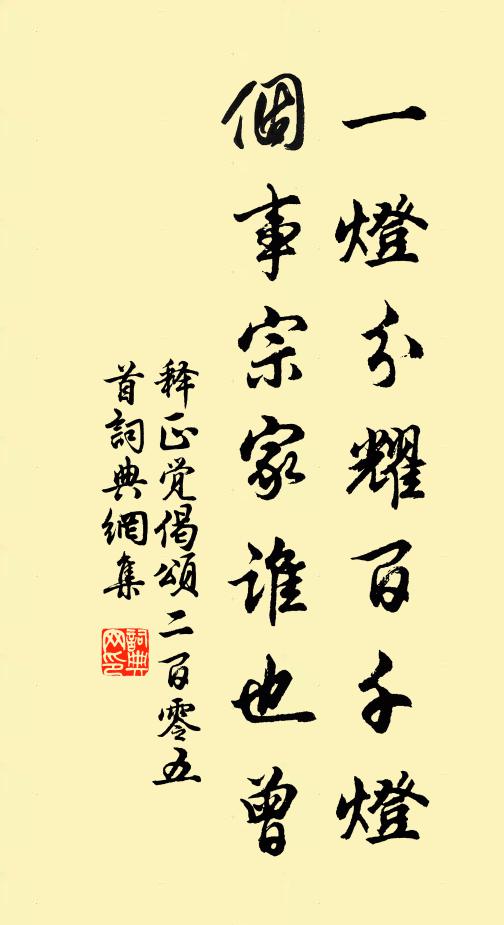 一燈分耀百千燈
個事宗家誰也曾
释正觉偈頌二百零五
首詞典網集
詞典
网印